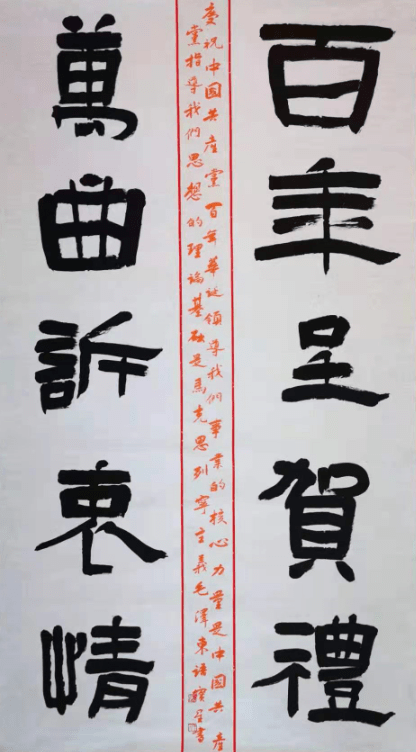 百年呈賀禮
萬曲訴衷情
慶祝中国共産黨百年華誕領導我們事業的核心力量是中国共産
黨指導我們思想的理論基礎是馬克思列寧主義毛澤東語